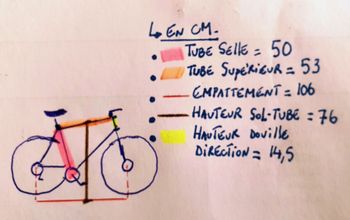 ↳ EN CM.
TUBE SELLE = 50
TUBE SUPÉRIEUR = 53
EMPATTEMENT = 106
HAUTEUR SOL-TUBE = 76
HAUTEUR DOUILLE
DIRECTION = 14,5